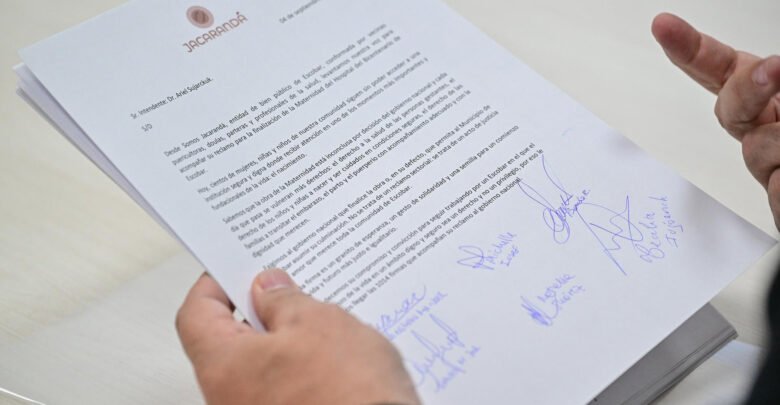 JACARANDÁ
04 de septiembre
Sr. Intendente: Dr. Ariel Sujarchuk.
S/D
Desde Somos Jacarandá, entidad de bien público de Escobar, conformada por vecinas
puericultoras, doulas, parteras y profesionales de la salud, levantamos nuestra voz para
acompañar su reclamo para la finalización de la Maternidad del Hospital del Bicentenario de
Escobar.
Hoy, cientos de mujeres, niñas y niños de nuestra comunidad siguen sin poder acceder a una
institución segura y digna donde recibir atención en uno de los momentos más importantes y
fundacionales de la vida: el nacimiento.
Sabemos que la obra de la Maternidad está inconclusa por decisión del gobierno nacional y cada
día que pasa se vulneran más derechos: el derecho a la salud de las personas gestantes, el
derecho de los niños y niñas a nacer y ser cuidados en condiciones seguras, el derecho de las
familias a transitar el embarazo, el parto y el puerperio con acompañamiento adecuado y con la
dignidad que merecen.
gimos al gobierno nacional que finalice la obra o, en su defecto, que permita al Municipio de
bar asumir su culminación. No se trata de un reclamo sectorial, se trata de un acto de justicia
amor que merece toda la comunidad de Escobar.
a firma es un granito de esperanza, un gesto de solidaridad y una semilla para un comienzo
vida y futuro más justo e igualitario.
decemos su compromiso y convicción para seguir trabajando por un Escobar en el que el
de la vida en un ámbito digno y seguro sea un derecho y no un privilegio, por eso le
llegar las 1014 firmas que acompañan su reclamo al gobierno nacional.